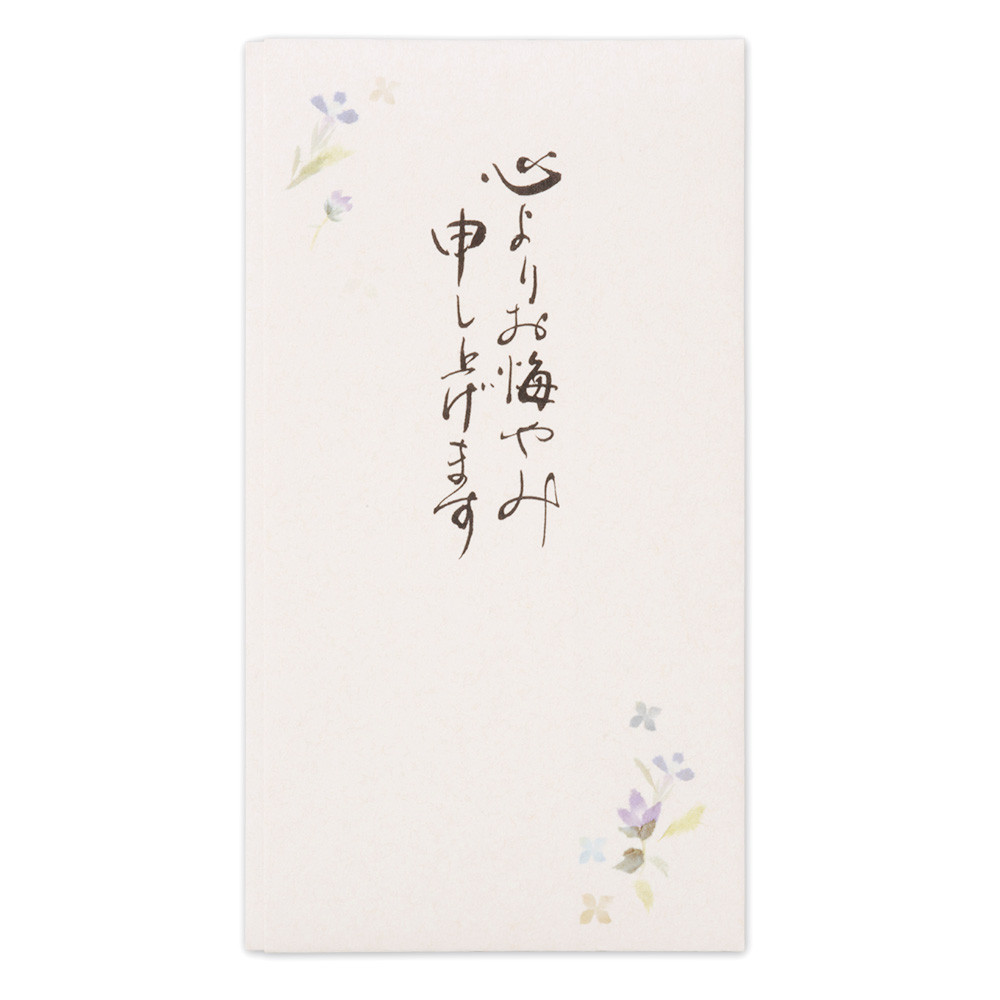 心よりお悔やみ
申し上げます